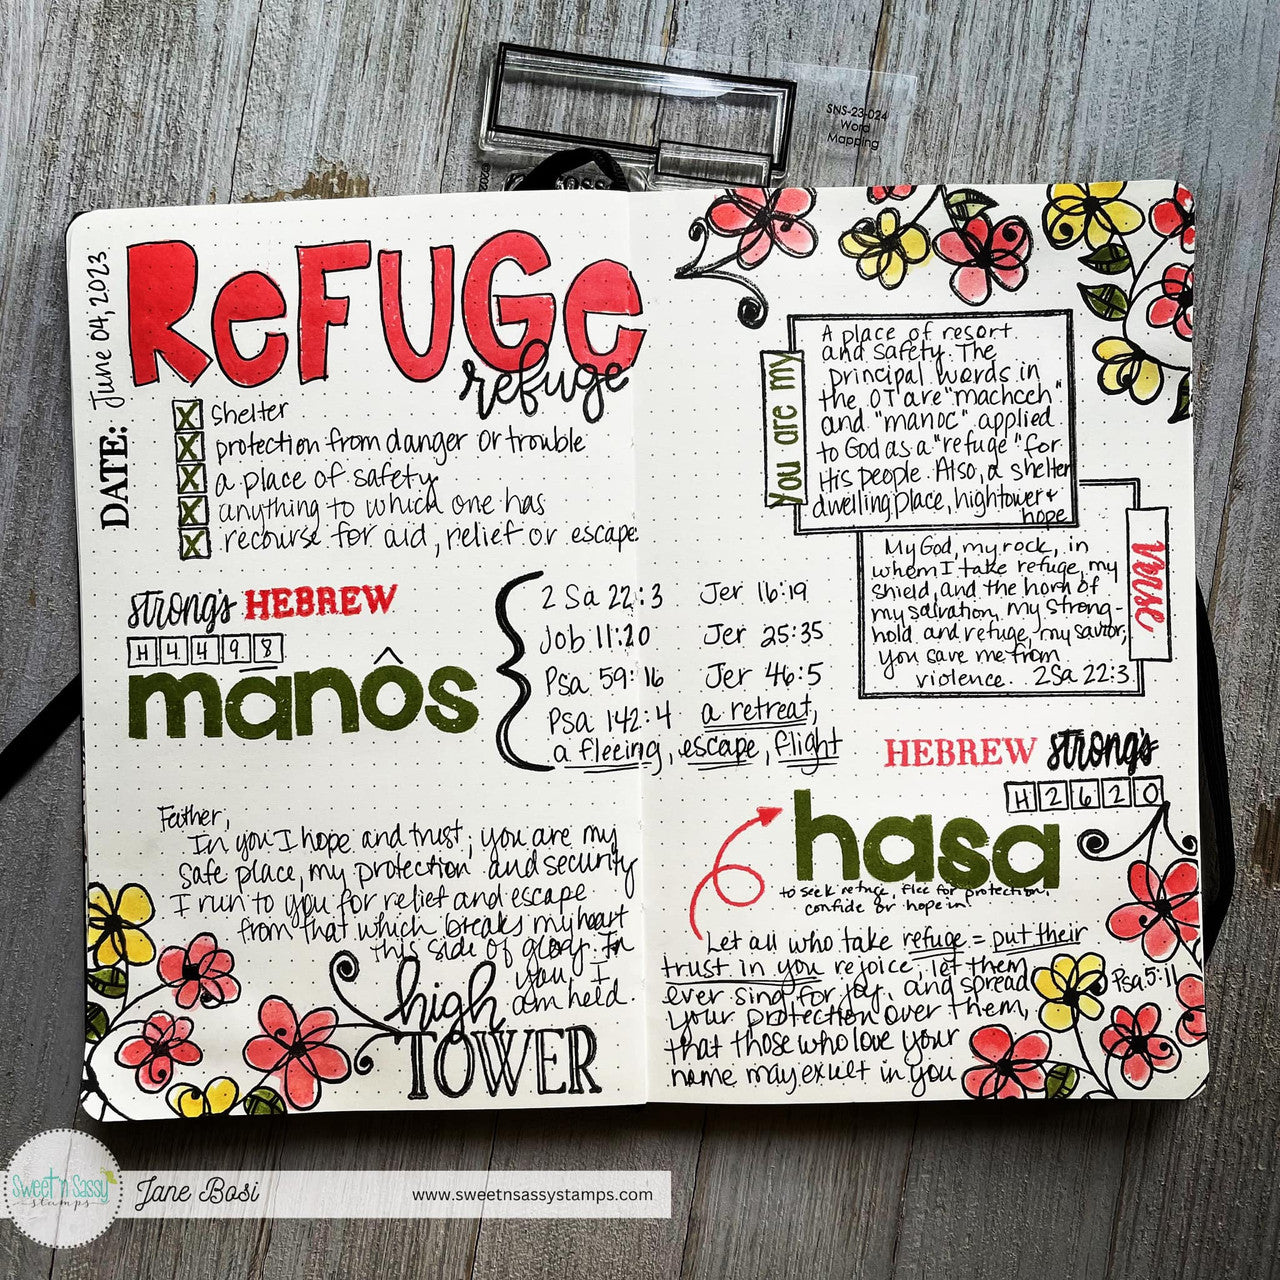 SNS-23-024
Word
Mapping
DATE: June 04, 2023
ReFUGe
refuge
X shelter
X protection from danger or trouble
X a place of safety
X anything to which one has
X recourse for aid, relief or escape
strong's HEBREW
H4498
manôs
2 Sa 22:3 Jer 16:19
Job 11:20 Jer 25:35
Psa 59:16 Jer 46:5
Psa 142:4 a retreat,
a fleeing, escape, flight
Father,
In you I hope and trust; you are my
safe place, my protection and security
I run to you for relief and escape
from that which breaks my heart
this side of glory. In
you I
am held.
high
TOWER
You are my
A place of resort
and safety. The
principal words in
the OT are "machceh"
and "manoc" applied
to God as a "refuge" for
His people. Also, a shelter
dwelling place, high tower +
hope
verse
My God, my rock, in
whom I take refuge, my
shield, and the horn of
my salvation, my strong-
hold and refuge, my savior;
you save me from
violence. 2Sa 22:3
HEBREW strong's
H2620
hasa
to seek refuge, flee for protection,
confide or hope in
Let all who take refuge = put their
trust in you rejoice; let them
ever sing for joy, and spread
your protection over them,
that those who love your
name may exult in you
Psa. 5:11
Sweet 'n Sassy
stamps
Jane Bosi
www.sweetnsassystamps.com